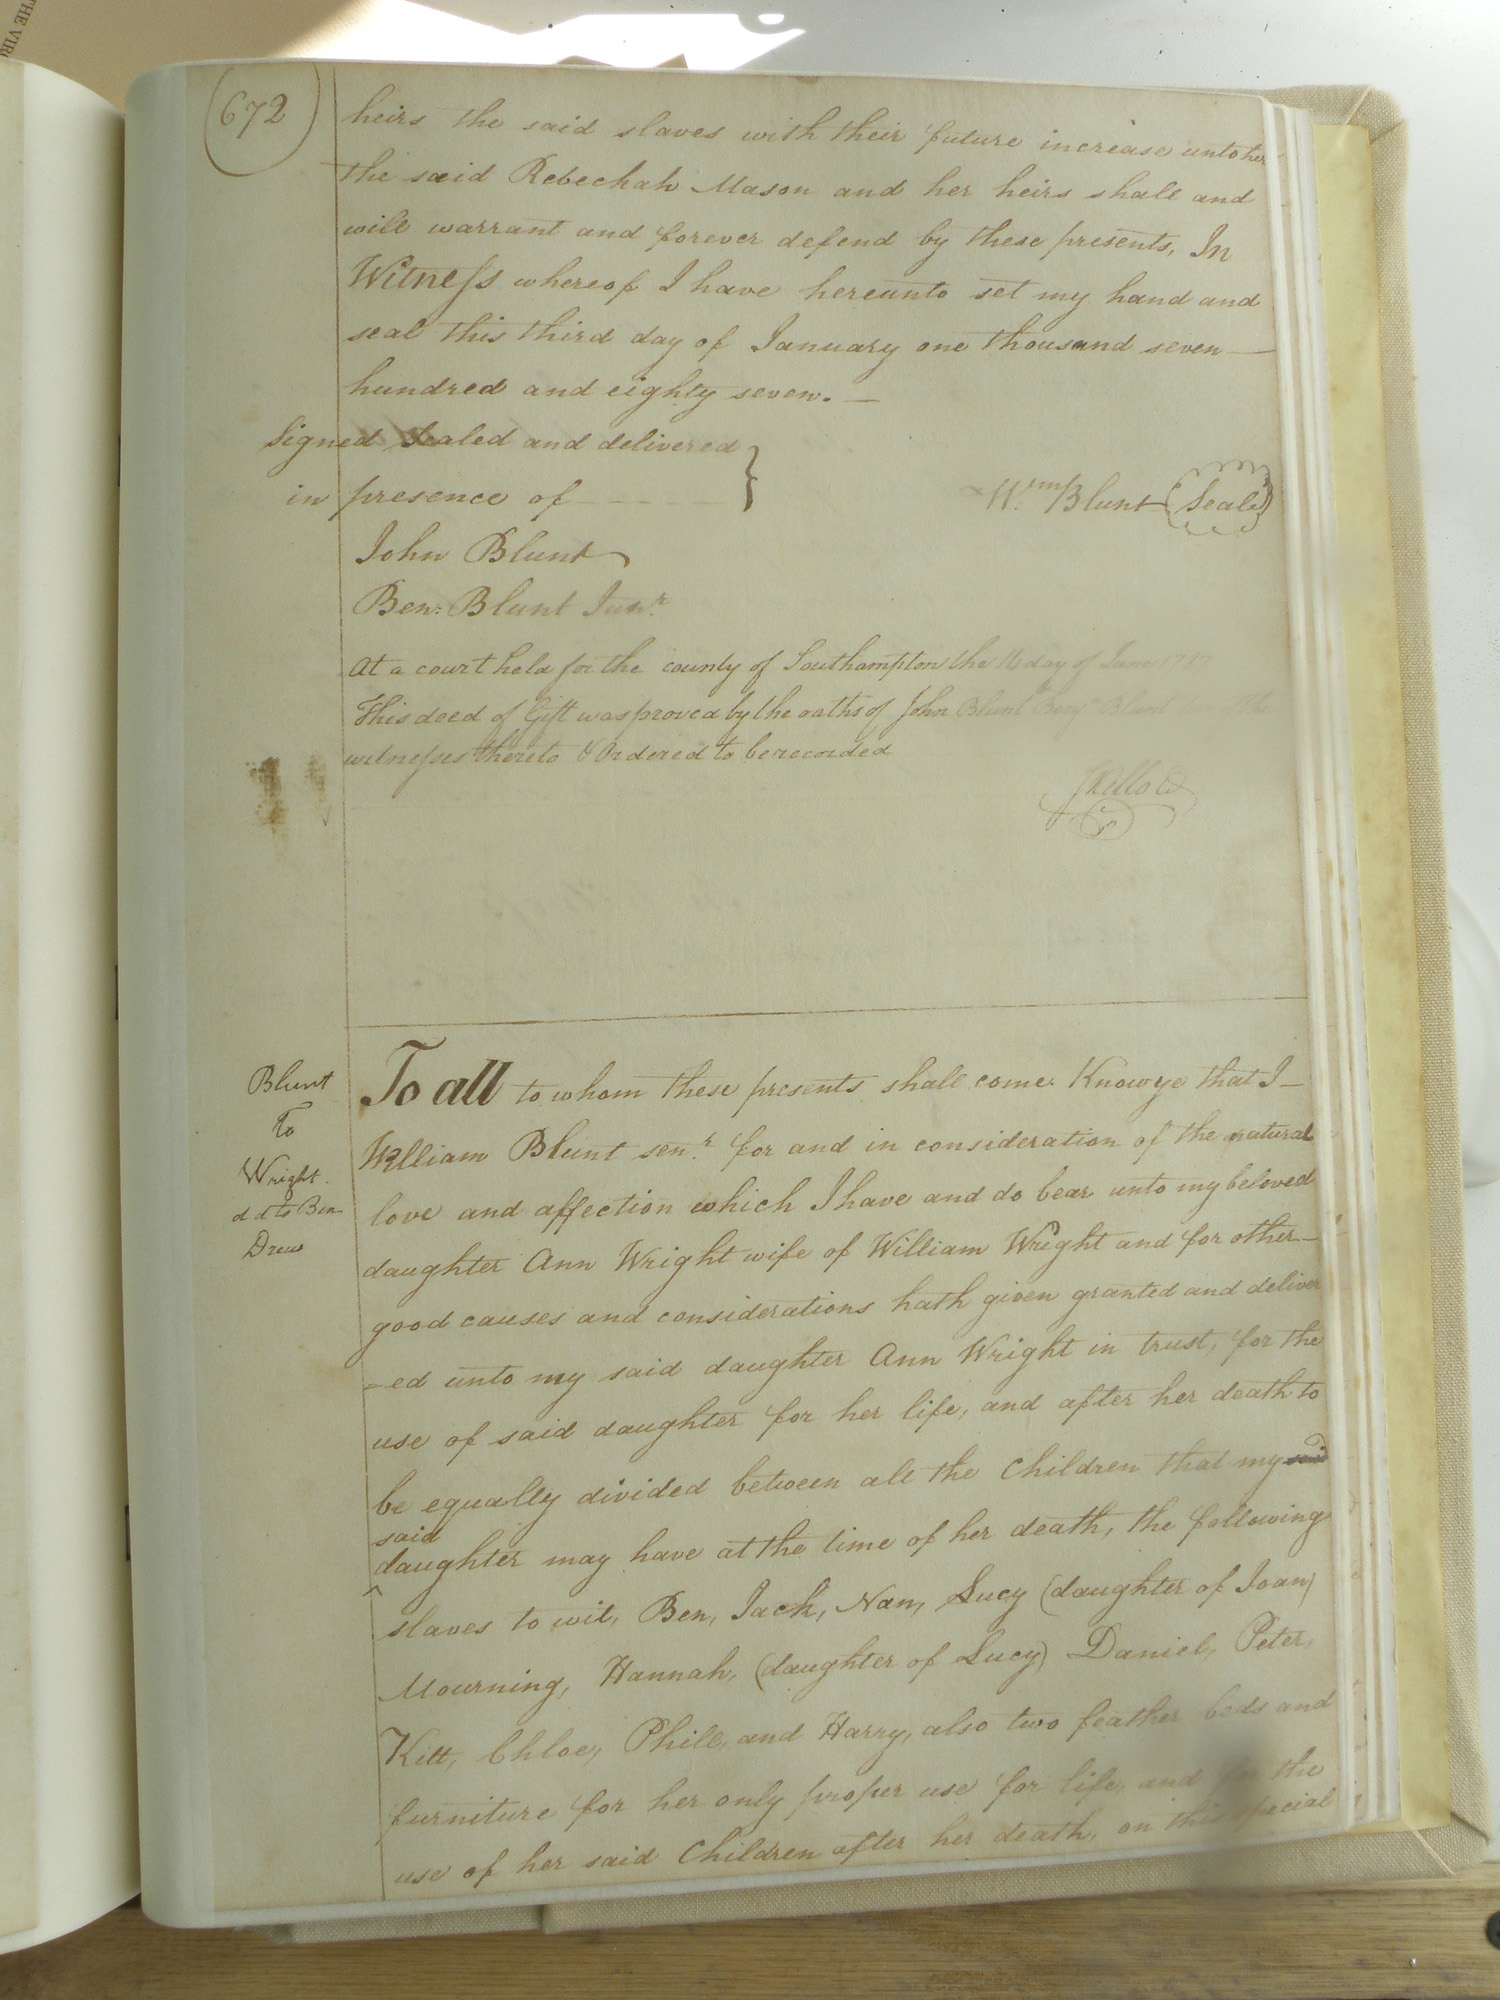 THE VIR
672
heirs the said slaves with their future increase unto her
the said Rebechah Mason and her heirs shall and
will warrant and forever defend by these presents, In
Witneſs whereof I have hereunto set my hand and
seal this third day of January one thousand seven
hundred and eighty seven.
Signed Sealed and delivered
in presence of
Wm. Blunt (Seal)
John Blunt
Ben: Blunt Junr.
At a court held for the county of Southampton the 14 day of June 1787
This deed of Gift was proved by the oaths of John Blunt & Benja Blunt the
witneſses thereto & Ordered to be recorded
Blunt
To
Wright.
d d to Ben
Drew
To all to whom these presents shall come Know ye that I
William Blunt senr. for and in consideration of the natural
love and affection which I have and do bear unto my beloved
daughter Ann Wright wife of William Wright and for other
good causes and considerations hath given granted and deliver
-ed unto my said daughter Ann Wright in trust, for the
use of said daughter for her life, and after her death to
be equally divided between all the Children that my said
said
daughter may have at the time of her death, the following
slaves to wit, Ben, Jack, Nan, Lucy (daughter of Joan)
Mourning, Hannah, (daughter of Lucy) Daniel, Peter,
Kitt, Chloe, Phill, and Harry, also two feather beds and
furniture for her only proper use for life, and for the
use of her said Children after her death, on this special